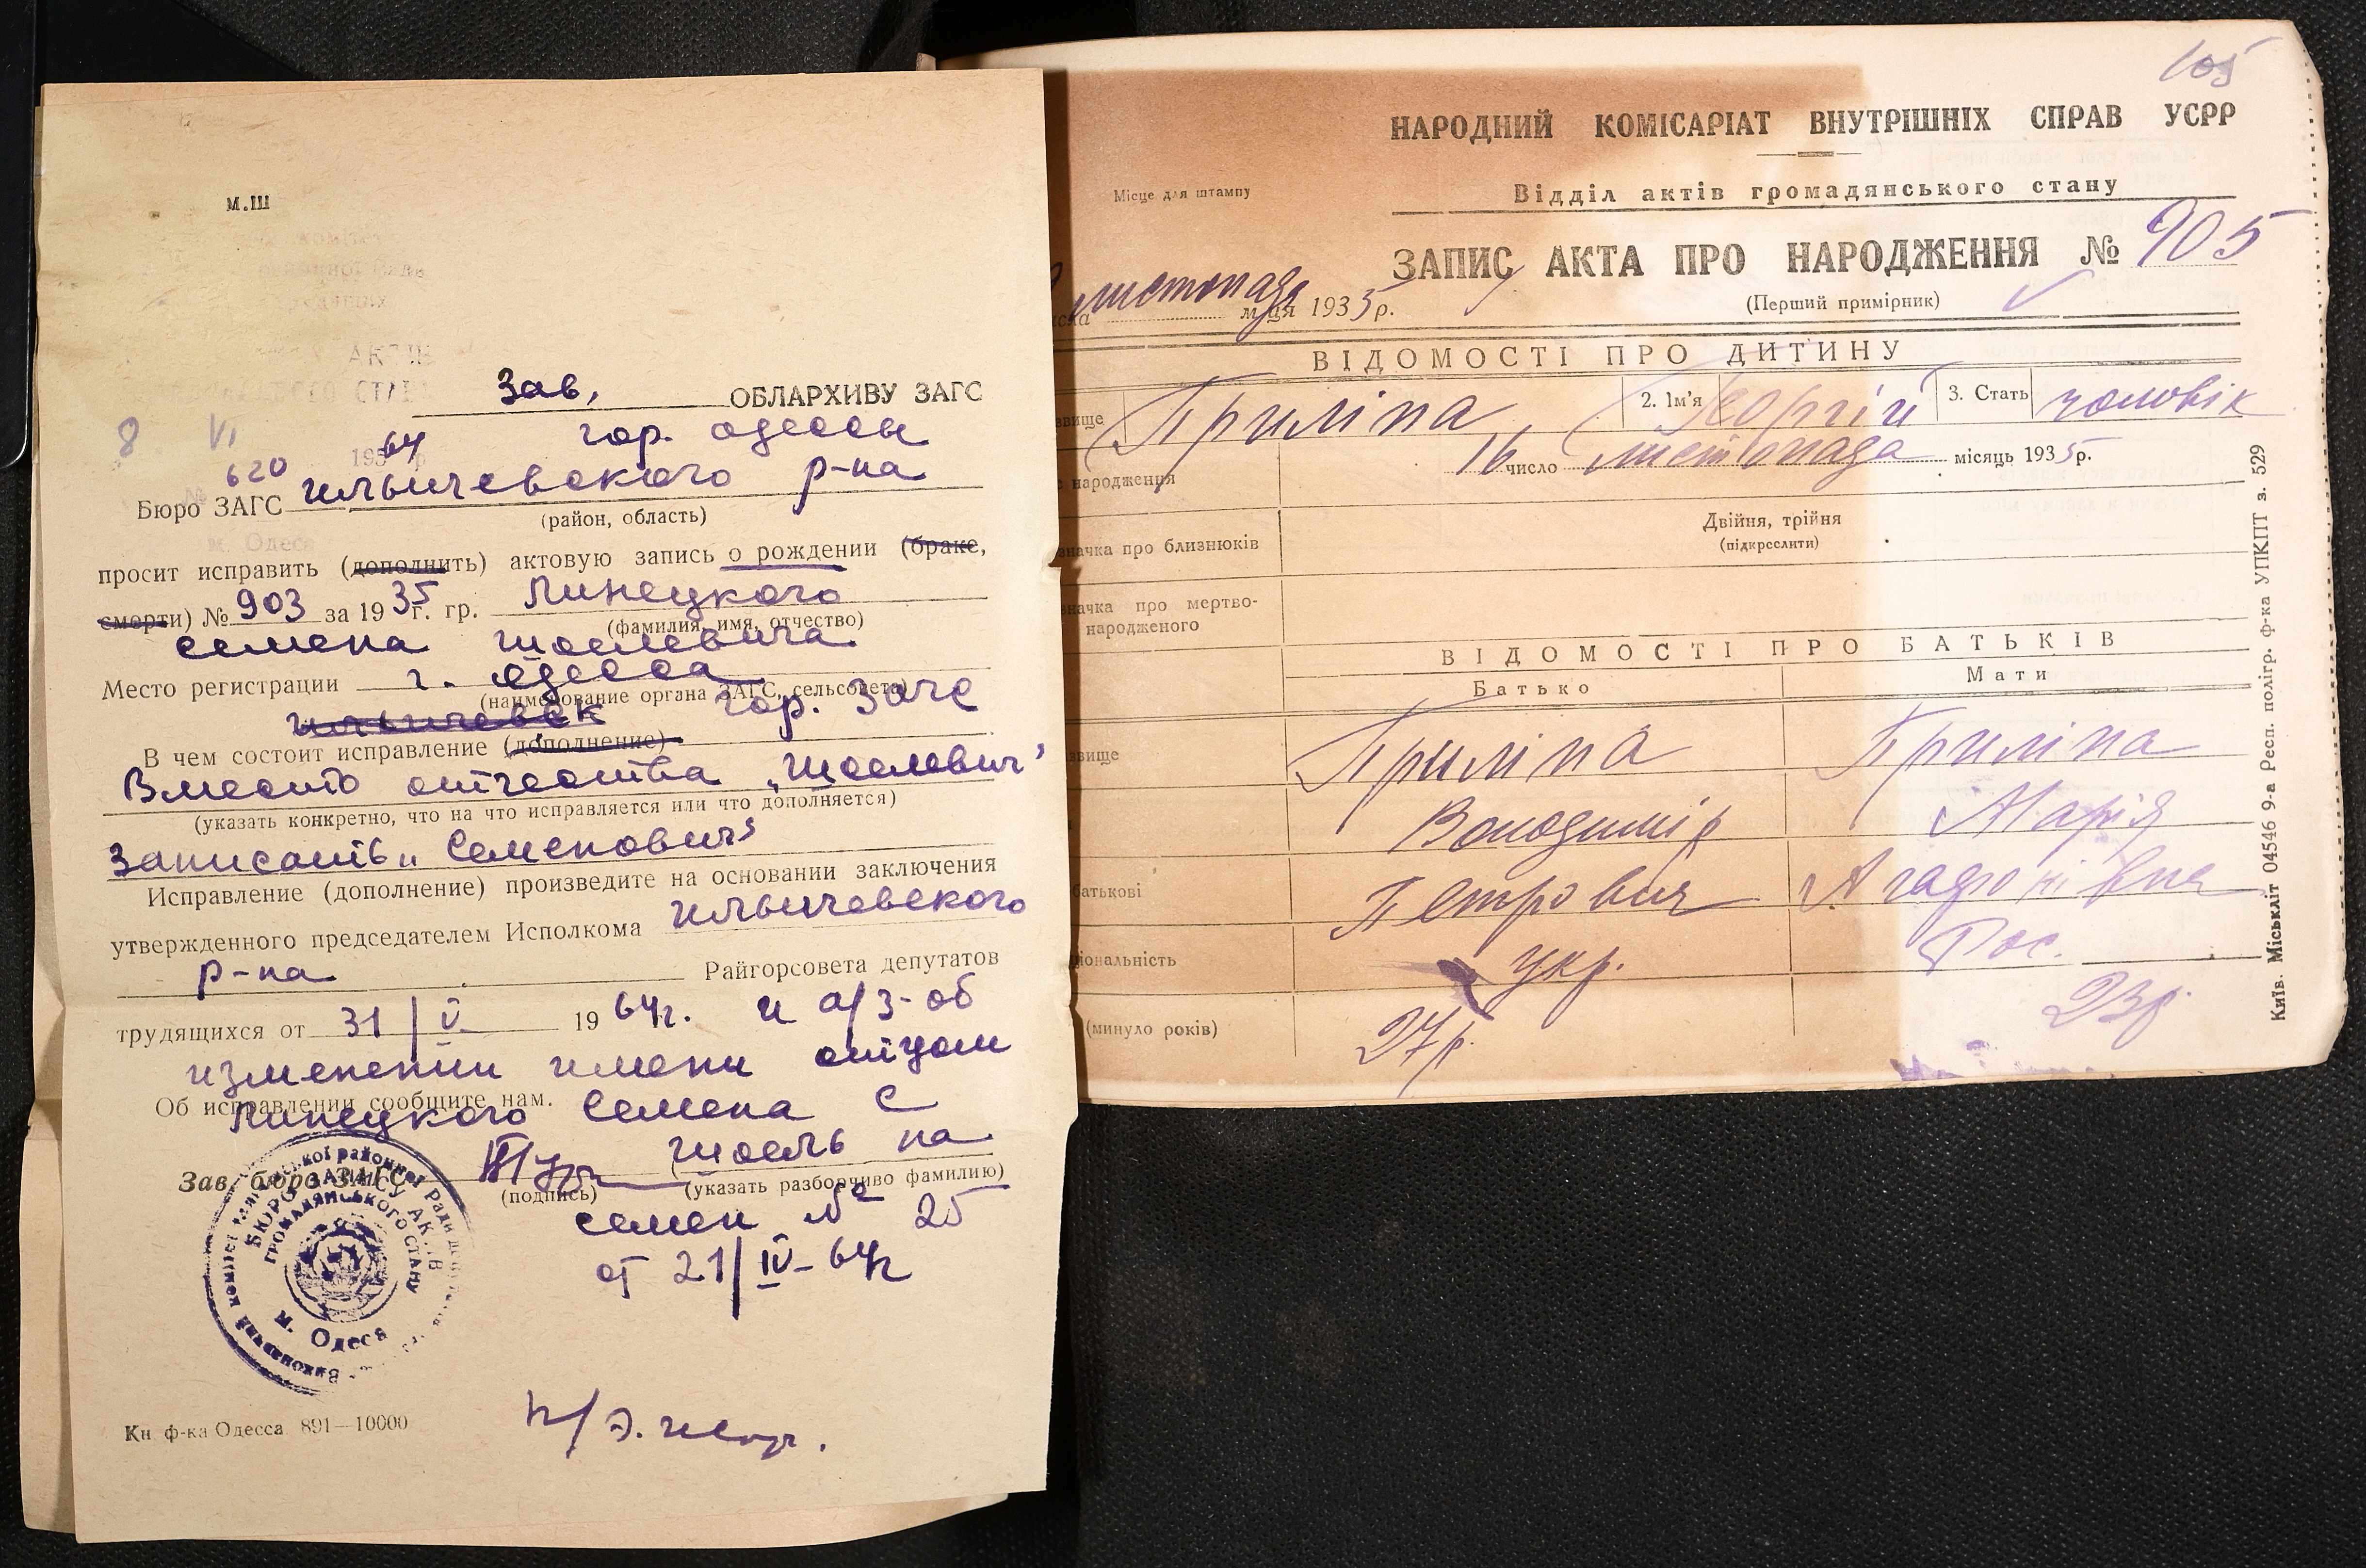 м.Ш
Зав, ОБЛАРХИВУ ЗАГС
8 VI 1964 р гор. Одессы
№ 620
Бюро ЗАГС Ильичевского р-на
(район, область)
м. Одеса
просит исправить (дополнить) актовую запись о рождении (браке,
смерти) № 903 за 1935 г. гр. Линецкого
(фамилия, имя, отчество)
Семена Шоелевича
Место регистрации г. Одесса
(наименование органа ЗАГС, сельсовета)
гор. Загс
В чем состоит исправление (дополнение)
Вместо отчества „Шоелевич"
(указать конкретно, что на что исправляется или что дополняется)
Записать „Семенович"
Исправление (дополнение) произведите на основании заключения
утвержденного председателем Исполкома Ильичевского
р-на Райгорсовета депутатов
трудящихся от 31/V 1964г. и а/з-об
изменении имени отцом
Об исправлении сообщите нам.
Линецкого Семена с
Шоель на
Зав. бюро ЗАГС
(подпись) (указать разборчиво фамилию)
Семен № 25
от 21/IV-64г
БЮРО ЗАПИСУ АКТІВ
ГРОМАДЯНСЬКОГО СТАНУ
м. Одеса
Кн ф-ка Одесса 891—10000
105
НАРОДНИЙ КОМІСАРІАТ ВНУТРІШНІХ СПРАВ УСРР
Місце для штампу
Відділ актів громадянського стану
ЗАПИС АКТА ПРО НАРОДЖЕННЯ № 905
(Перший примірник)
листопада м-ця 1935 р.
ВІДОМОСТІ ПРО ДИТИНУ
Приліпа 2. Ім'я Георгій 3. Стать чоловік
народження 16 число листопада місяць 1935 р.
Двійня, трійня
(підкреслити)
значка про близнюків
значка про мертво-
народженого
ВІДОМОСТІ ПРО БАТЬКІВ
Батько Мати
звище Приліпа Приліпа
Володимір Марія
батькові Петрович Агафонівна
ціональність укр. Рос.
(минуло років) 27 р. 23 р.
Київ. Міськліт 04546 9-а Респ. полігр. ф-ка УПКПТ з. 529